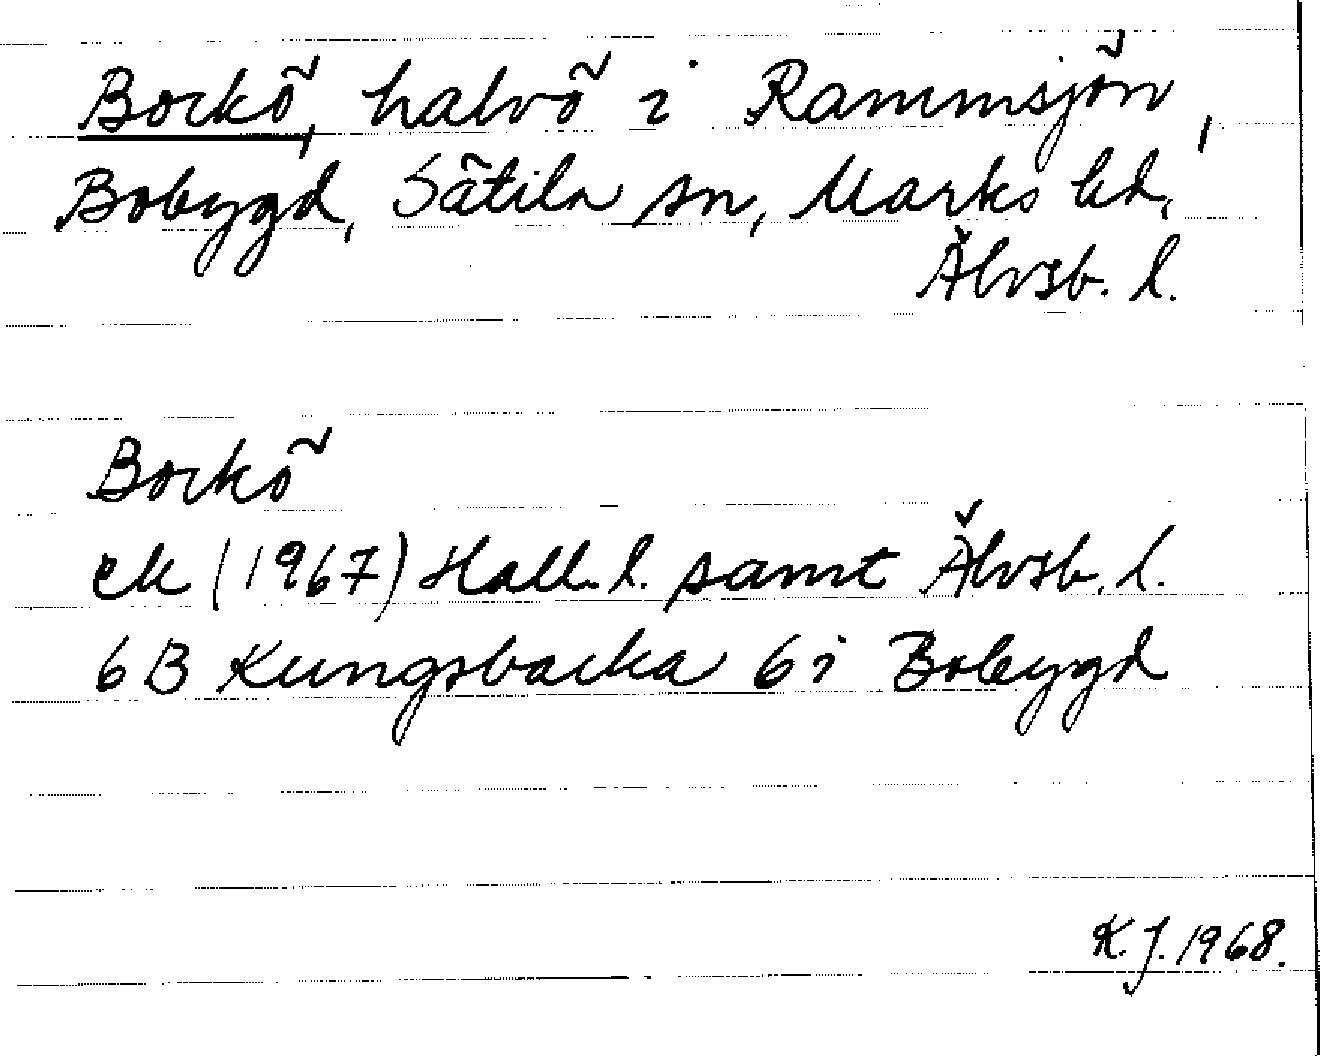 Bockö, halvö i Rammsjön,
Bobygd, Sätila sn, Marks hd,
Älvsb. l.
Bockö
ek (1967) Hall. l. samt Älvsb. l.
6B Kungsbacka 6i Bobygd
K. J. 1968.